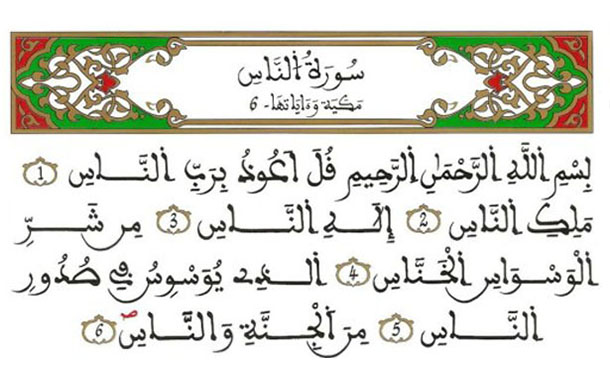 سُورَةُ النَّاسِ
مَكِّيَّة وَءَايَاتُهَا - 6
بِسْمِ اللَّهِ الرَّحْمَٰنِ الرَّحِيمِ قُلَ اَعُوذُ بِرَبِّ النَّاسِ 1
مَلِكِ النَّاسِ 2 إِلَٰهِ النَّاسِ 3 مِن شَرِّ
الْوَسْوَاسِ الْخَنَّاسِ 4 الَّذِے يُوَسْوِسُ فِے صُدُورِ
النَّاسِ 5 مِنَ الْجِنَّةِ وَالنَّاسِ ص 6